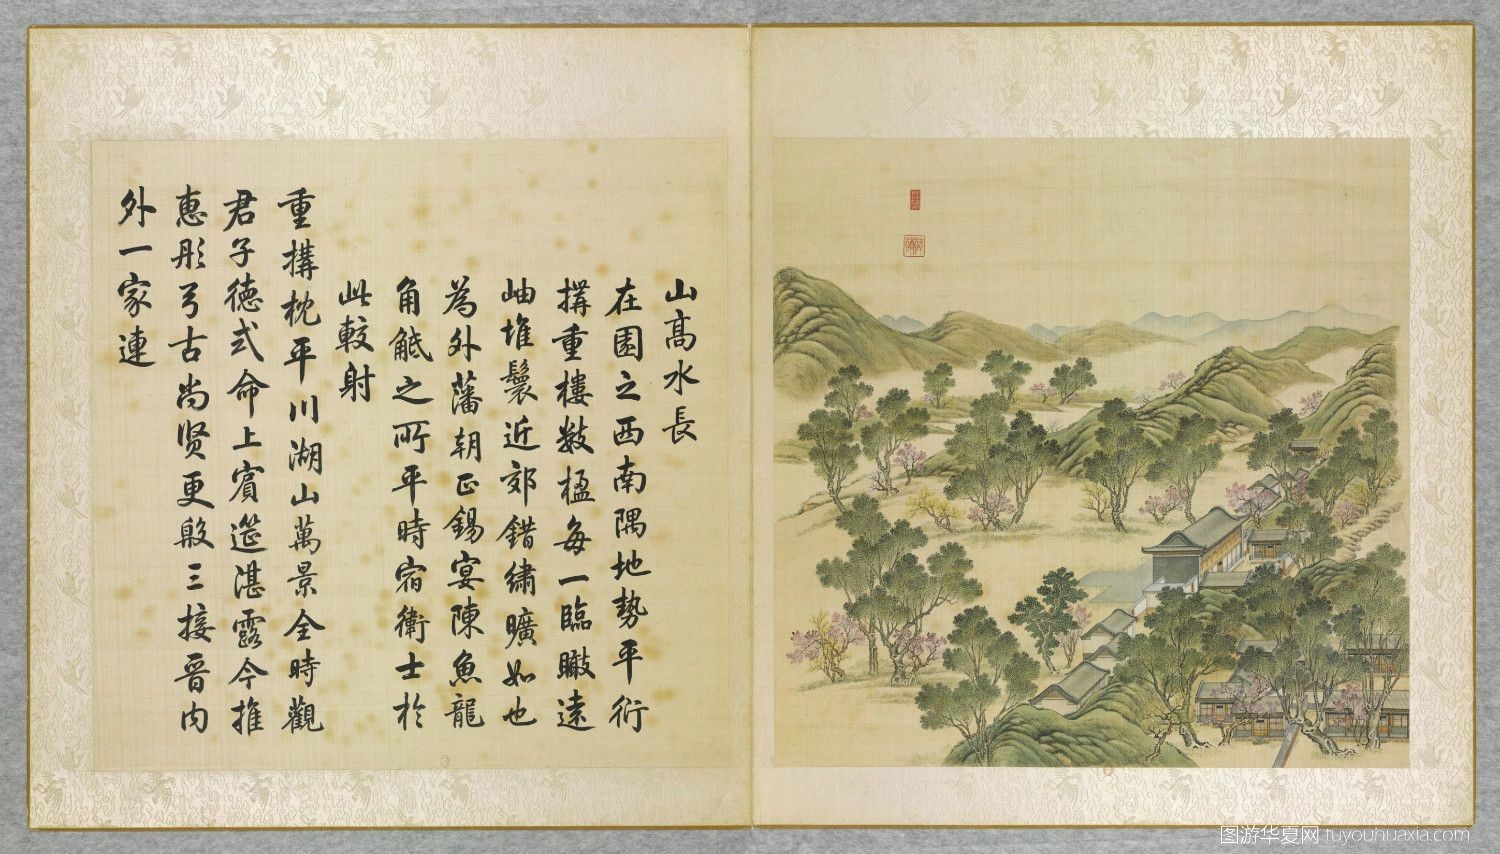 山高水長
在園之西南隅地勢平衍
搆重樓數楹每一臨瞰遠
岫堆鬟近郊錯繡曠如也
為外藩朝正錫宴陳魚龍
角觝之所平時宿衛士於
此較射
重搆枕平川湖山萬景全時觀
君子德式命上賓筵湛露今推
惠彤弓古尚贤更殷三接晋内
外一家連
图游华夏网 tuyouhuaxia.com